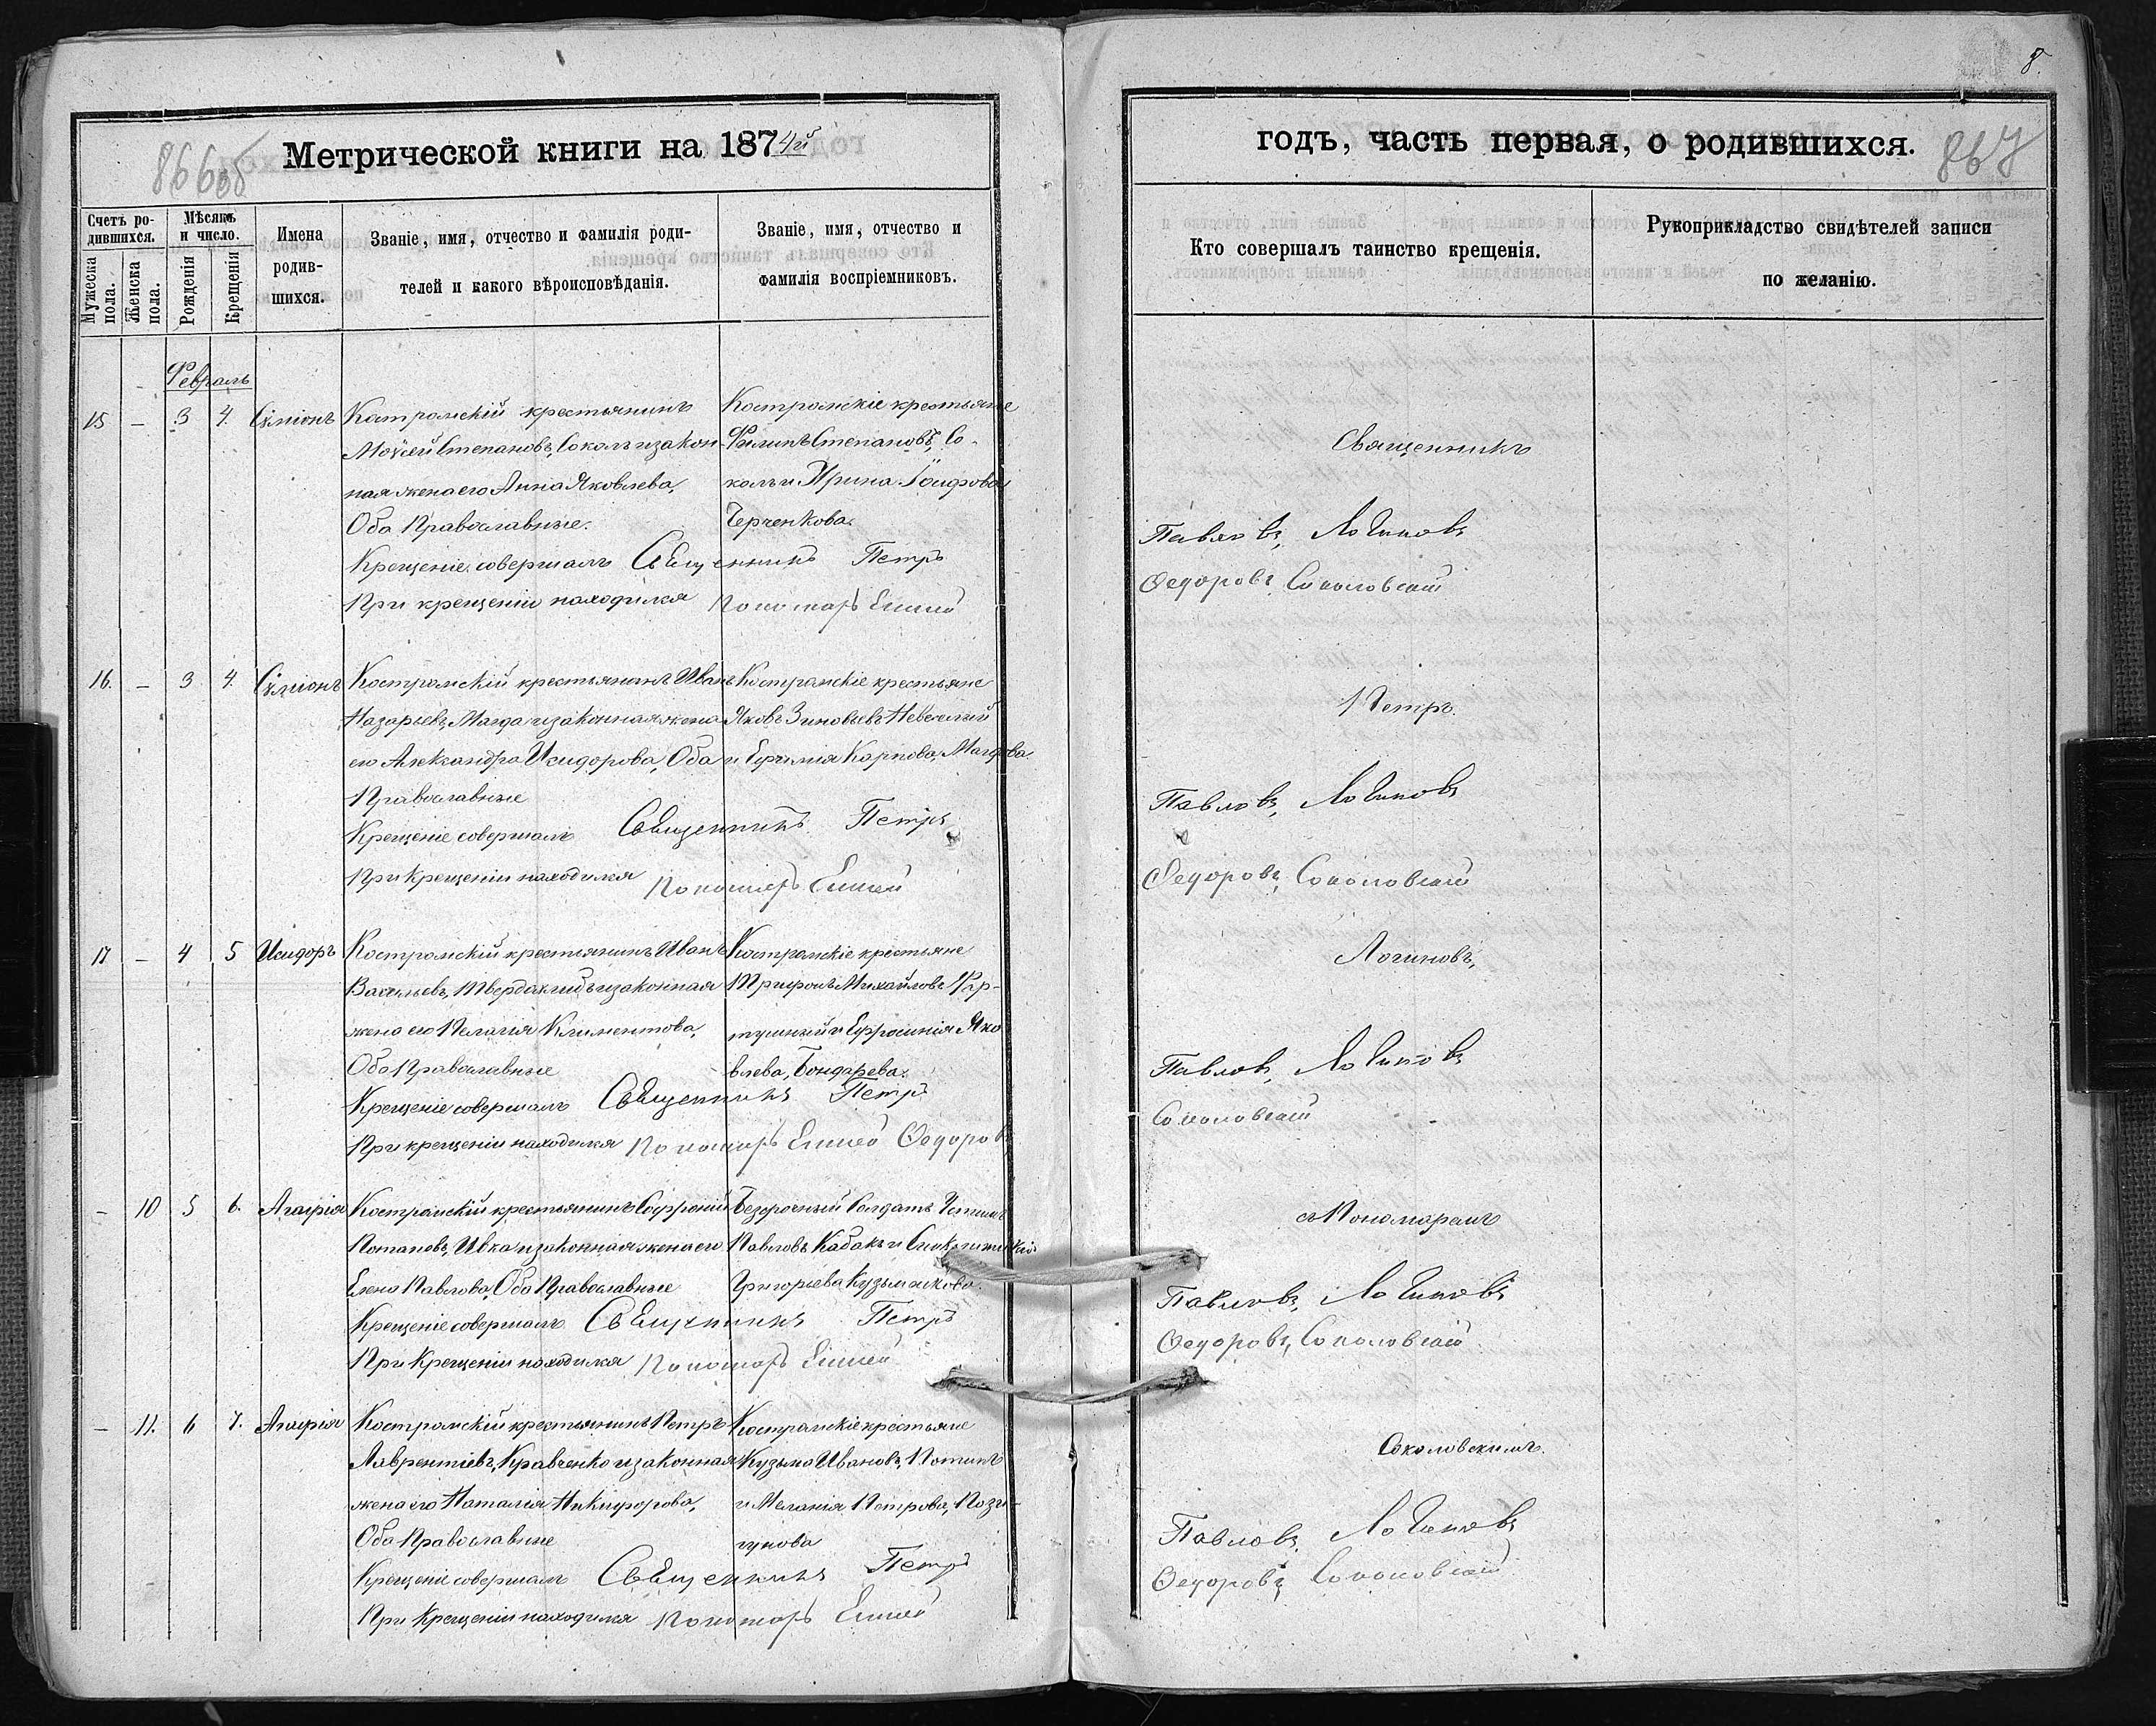 866об
Метрической книги на 1874й
Счетъ ро-
дившихся.
Мужеска
пола.
Женска
пола.
Мѣсяцъ
и число.
Рожденія
Крещенія
Имена
родив-
шихся.
Званіе, имя, отчество и фамилія роди-
телей и какого вѣроисповѣданія.
Званіе, имя, отчество и
фамилія воспріемниковъ.
Февраль
15 — 3 4. Сѵміонъ
Костромскій крестьянинъ
Моѵсей Степановъ, Соколъ и закон-
ная жена его Анна Яковлева,
Оба Православные.
Костромскіе крестьяне
Филипъ Степановъ, Со-
колъ и Ирина Іосифова
Черченкова.
Крещеніе совершалъ Священникъ Петръ
При крещеніи находился Пономарь Елисей
16. — 3 4. Сѵміонъ
Костромскій крестьянинъ Иванъ
Назарьевъ, Магда и законная жена
его Александра Исидорова, Оба
Православные
Костромскіе крестьяне
Яковъ Зиновьевъ Невеселый
и Ефимія Карпова, Магдова.
Крещеніе совершалъ Священникъ Петръ
При Крещеніи находился Пономарь Елисей
17 — 4 5 Исидоръ
Костромскій крестьянинъ Иванъ
Васильевъ, Твердохлибъ и законная
жена его Пелагія Климентова,
Оба Православные
Костромскіе крестьяне
Трифонъ Михайловъ
и Ефросинія Яко
влева, Бондарева.
Крещеніе совершалъ Священникъ Петръ
При крещеніи находился Пономарь Елисей Федоровъ
— 10 5 6. Агафія
Костромскій крестьянинъ Софроній
Потаповъ, Ивка и законная жена его
Елена Павлова, Оба Православные
Безсрочный Солдатъ
Павловъ Кабакъ и
Григорьева Кузьменкова.
Крещеніе совершалъ Священникъ Петръ
При Крещеніи находился Пономарь Елисей
— 11. 6 7. Агафія
Костромскій крестьянинъ Петръ
Лаврентіевъ, Кравченко и законная
жена его Наталія Никифорова,
Оба Православные
Костромскіе крестьяне
Кузьма Ивановъ,
и Меланія Петрова,
Крещеніе совершалъ Священникъ Петръ
При Крещеніи находился Пономарь Елисей
8.
867
годъ, часть первая, о родившихся.
Кто совершалъ таинство крещенія.
Рукоприкладство свидѣтелей записи
по желанію.
Священникъ
Павловъ, Логиновъ
Федоровъ, Соколовскій
Петръ.
Павловъ, Логиновъ
Федоровъ, Соколовскій
Логиновъ,
Павловъ, Логиновъ
Соколовскій
съ Пономаремъ
Павловъ, Логиновъ
Федоровъ, Соколовскій
Соколовскимъ.
Павловъ, Логиновъ
Федоровъ, Соколовскій